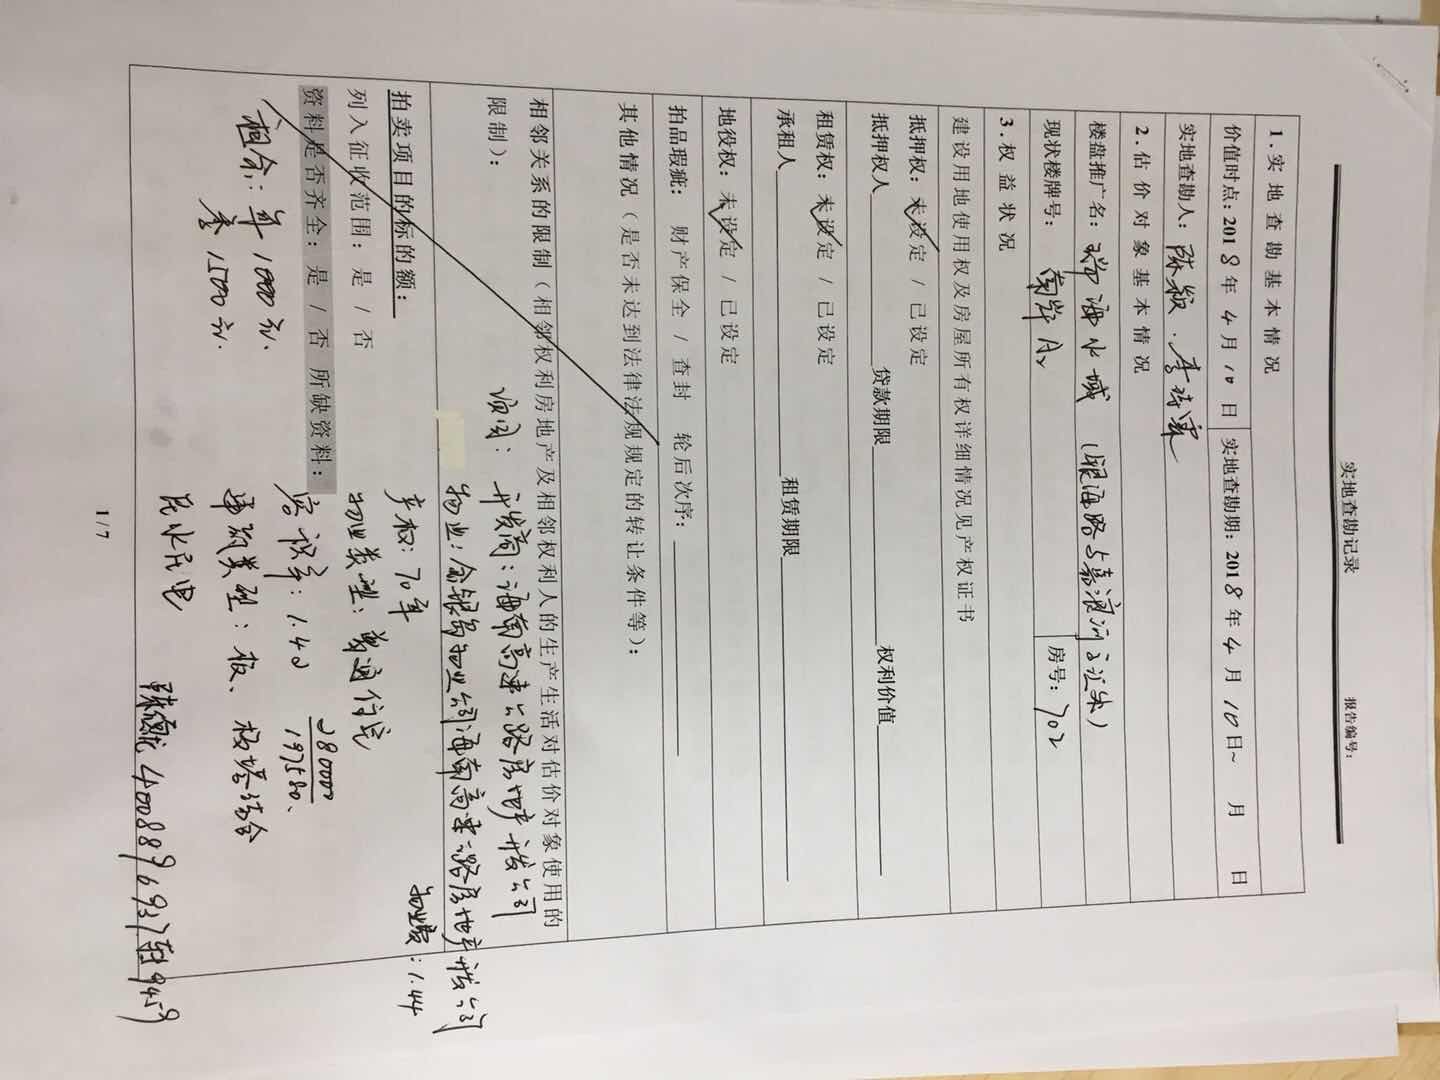 实地查勘记录
报告编号：
1.实地查勘基本情况
价值时点：2018年4月10日 实地查勘期：2018年4月10日~ 月 日
实地查勘人：陈颖．李琦
2.估价对象基本情况
楼盘推广名：瑞海水城（银海路与嘉浪河交汇处）
现状楼牌号：南岸A2 房号：702
3.权益状况
建设用地使用权及房屋所有权详细情况见产权证书
抵押权：未设定/已设定
抵押权人 贷款期限 权利价值
租赁权：未设定/已设定
承租人 租赁期限
地役权：未设定/已设定
拍品瑕疵： 财产保全/查封 轮后次序：
其他情况（是否未达到法律法规规定的转让条件等）：
相邻关系的限制（相邻权利房地产及相邻权利人的生产生活对估价对象使用的
限制）：
询问：开发商：海南高速公路房地产开发公司
物业：金银岛物业公司海南高速公路房地产开发公司
拍卖项目的标的额：
产权：70年 物业费：1.44
列入征收范围：是/否
物业类型：普通住宅
资料是否齐全：是/否 所缺资料：
容积率：1.40
280000
197580、
租金：年 10000元.
季 1500元.
建筑类型：板、板塔结合
民水民电
4008896937转9459
1/7